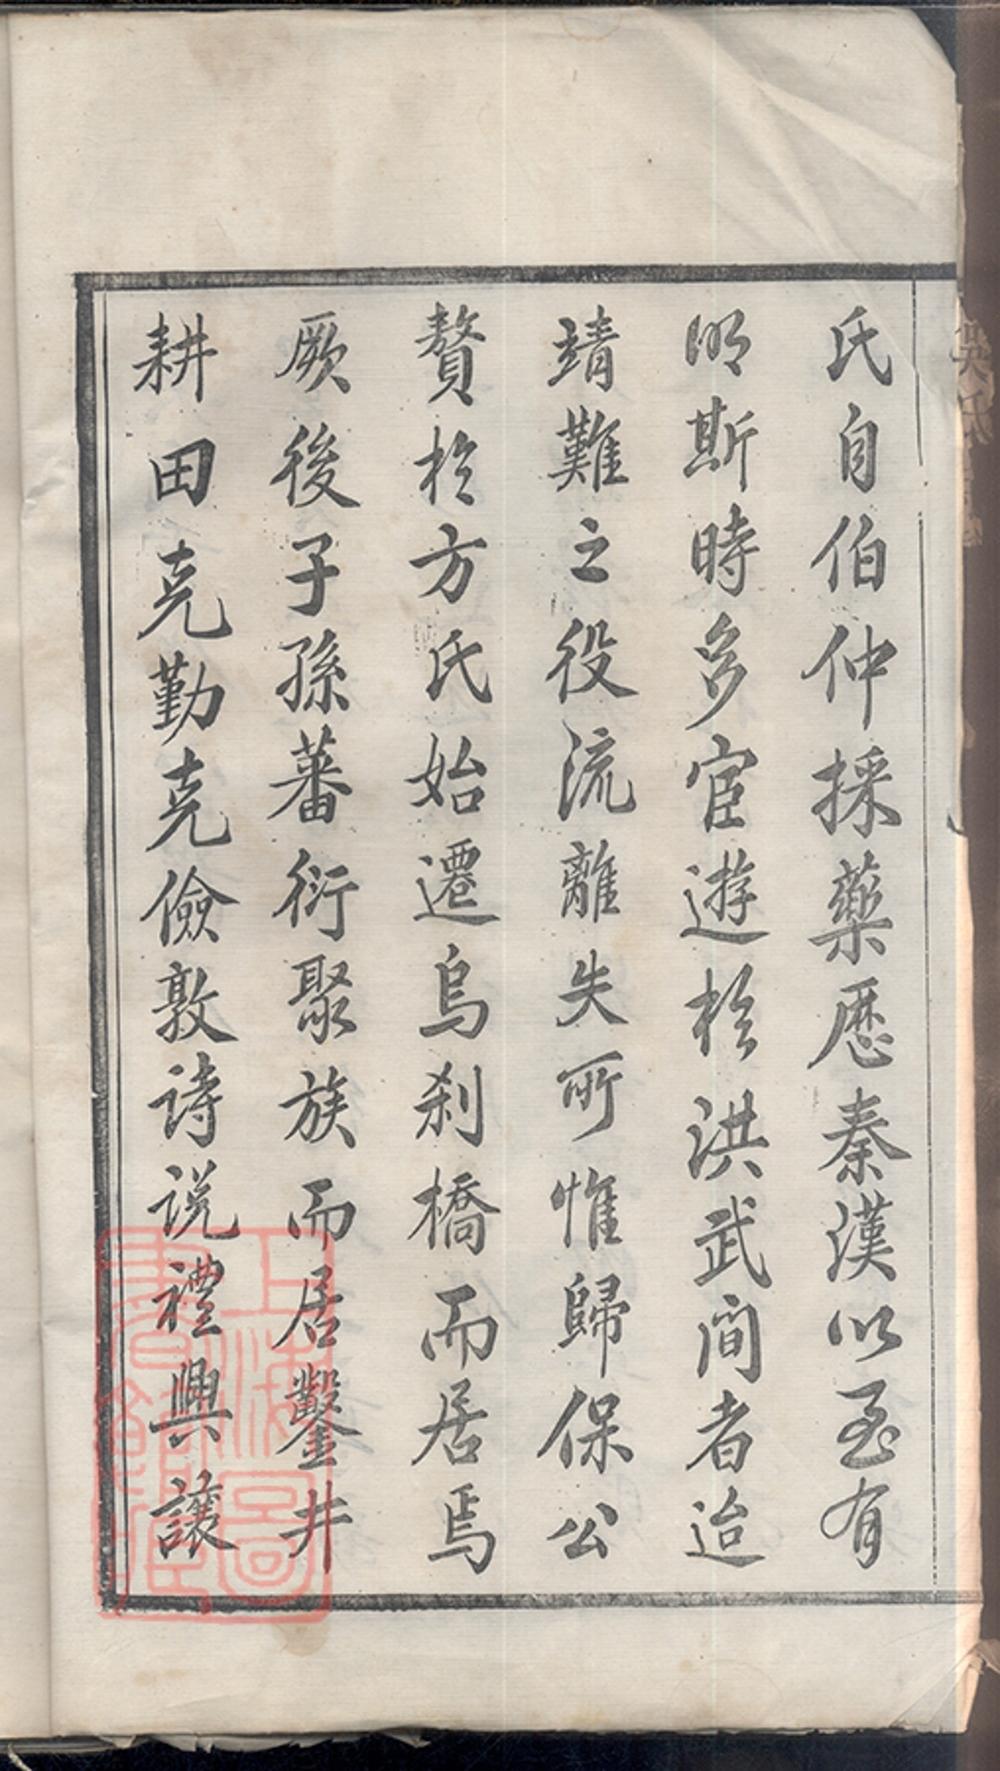 氏自伯仲採藥歷秦漢以至有
明斯時多宦遊於洪武间者迨
靖難之役流離失所惟歸保公
贅於方氏始遷烏剎橋而居焉
厥後子孫蕃衍聚族而居鑿井
耕田克勤克儉敦詩説禮興讓
上海圖書館藏